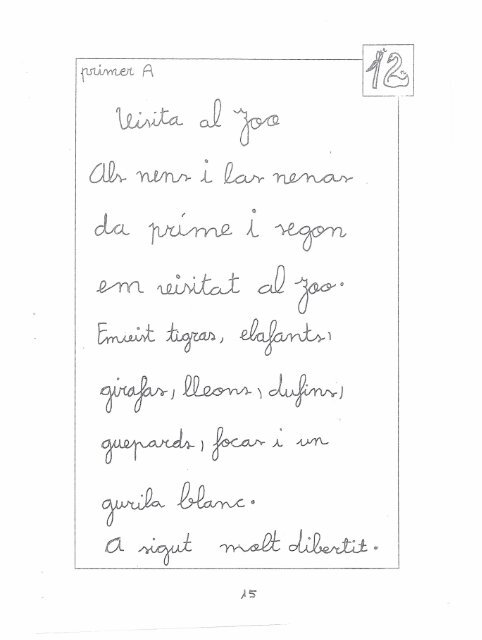 primer A
12
Visita al zoo
Als nens i las nenas
da príme i segon
em visitat al zoo.
Emvist tigras, elafants,
girafas, lleons, dufins,
guepards, focas i un
gurila blanc.
A sigut molt dibertit.
15